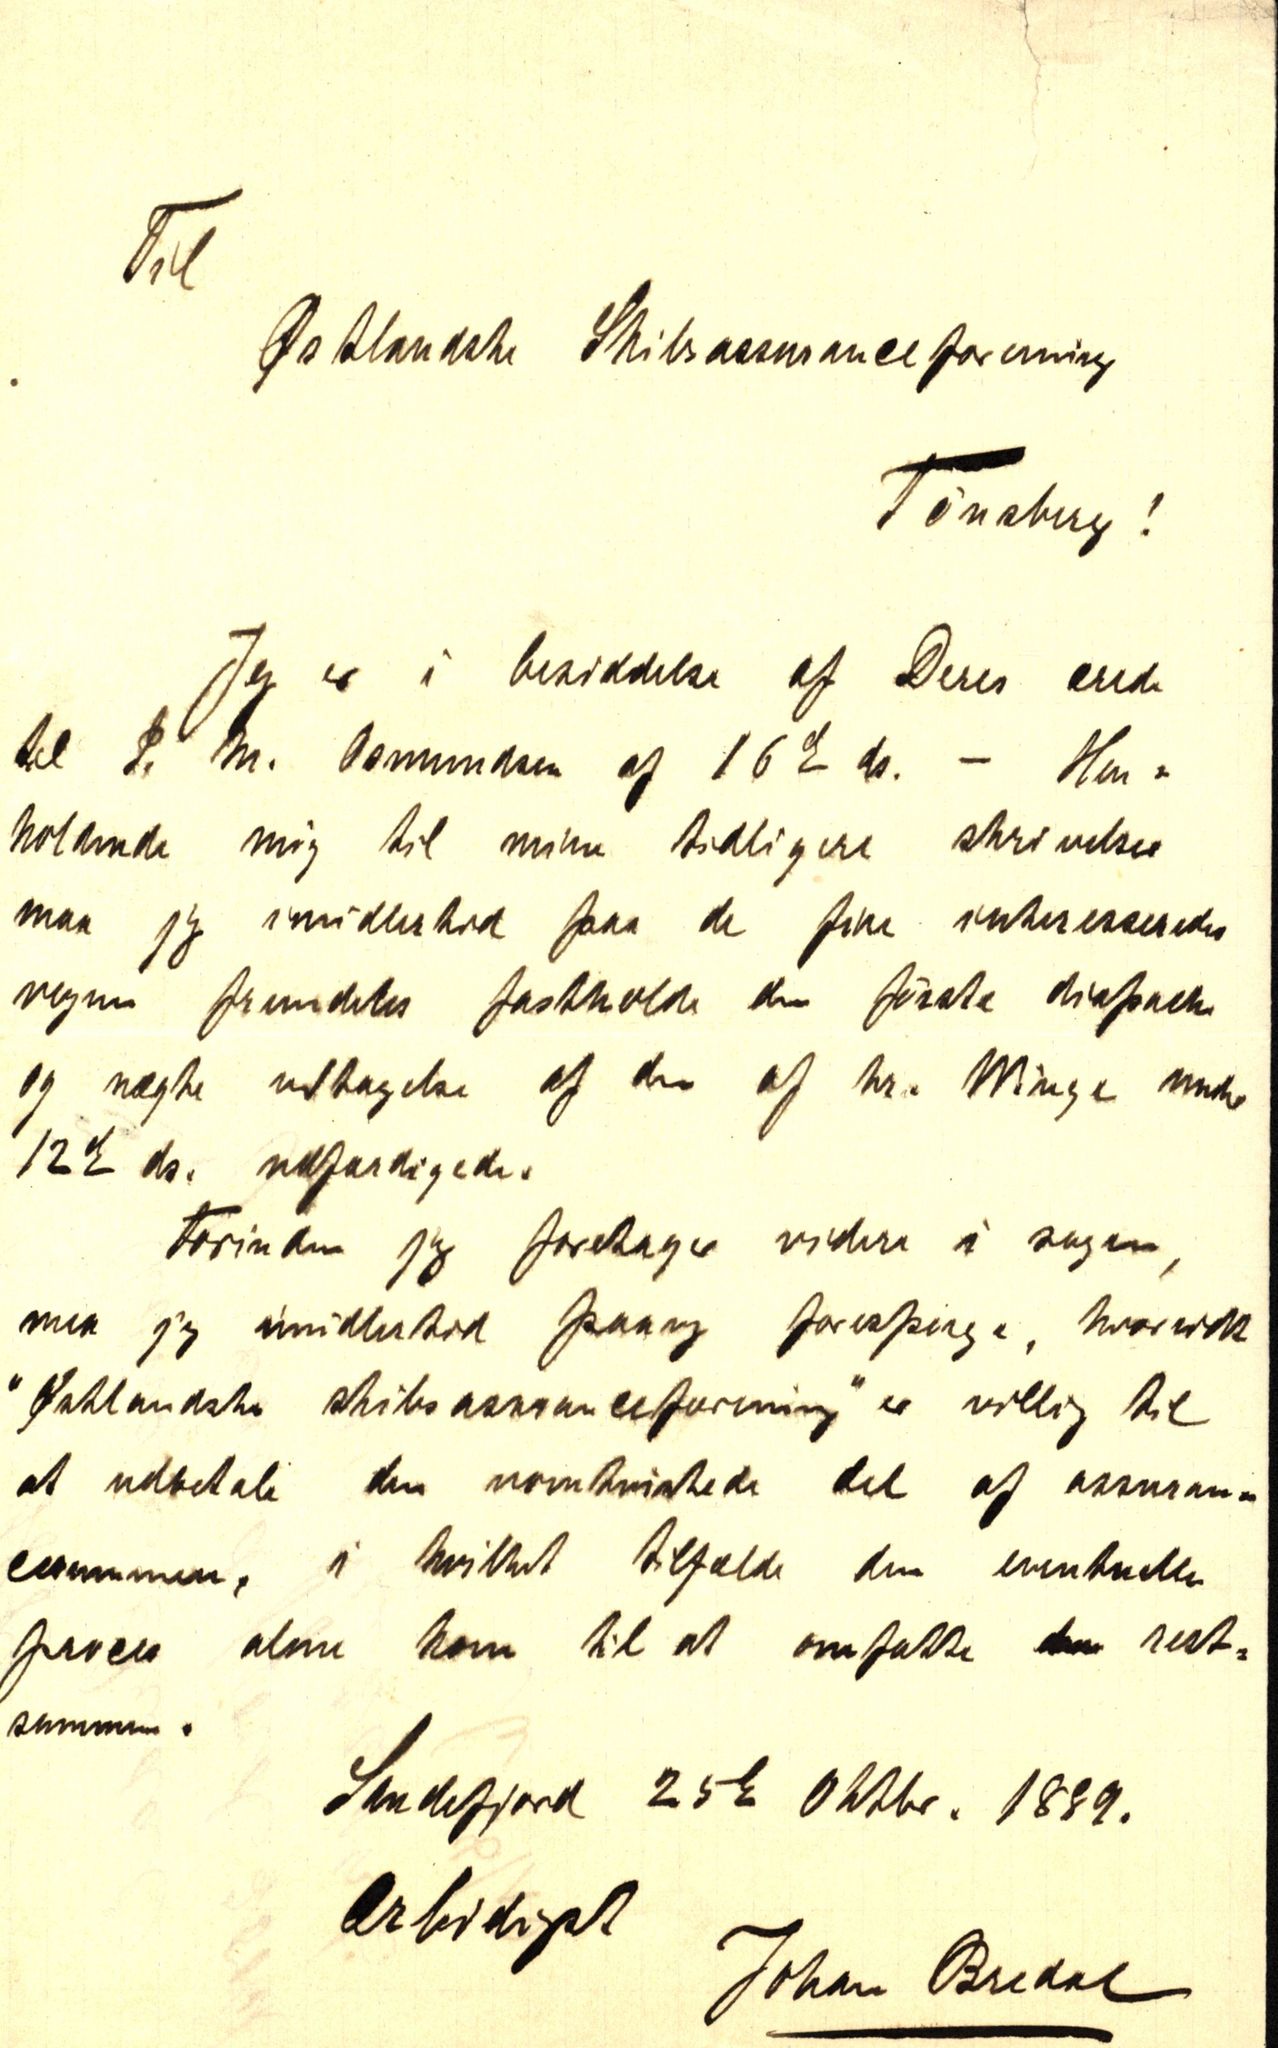 Til
Østlandske Skibsassuranceforening
Tönsberg!
Jeg er i besiddelse af Deres ærede
til P. M. Osmundsen af 16de ds. – Hen=
holdende mig til mine tidligere skrivelser
maa jeg imidlertid paa de fire interesseredes
vegne fremdeles fastholde den första dispache
og nægte vedtagelse af den af hr. Winge under
12te ds. udfærdigede.
Forinden jeg foretager videre i sagen,
maa jeg imidlertid paany forespørge, hvorvidt
"Østlandske skibsassuranceforening" er villig til
at udbetale den uomtvistede del af assuran=
cesummen, i hvilket tilfælde den eventuelle
proces alene kom til at omfatte rest=
summen.
Sandefjord 25de Oktbr. 1889.
Ærbødigst
Johan Bredal